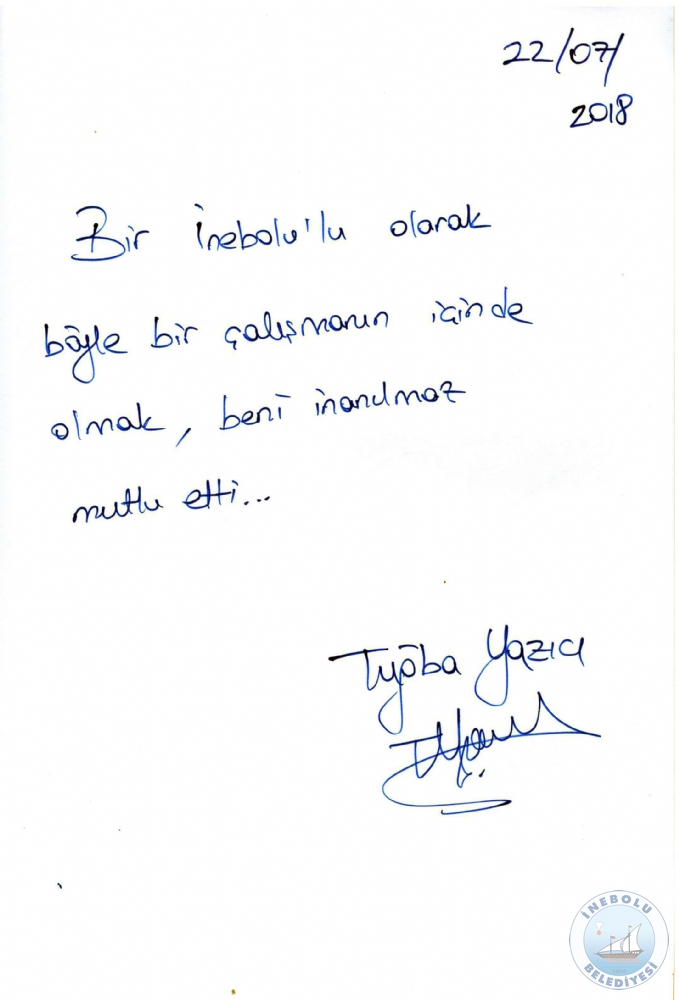 22/07/
2018
Bir İnebolu'lu olarak
böyle bir çalışmanın içinde
olmak, beni inanılmaz
mutlu etti...
Tuğba Yazıcı
İNEBOLU
BELEDİYESİ